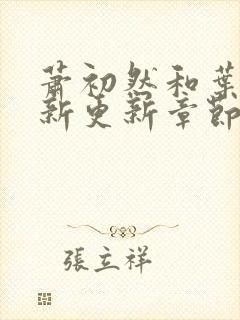 萧初然和葉
新更新章節
張立祥